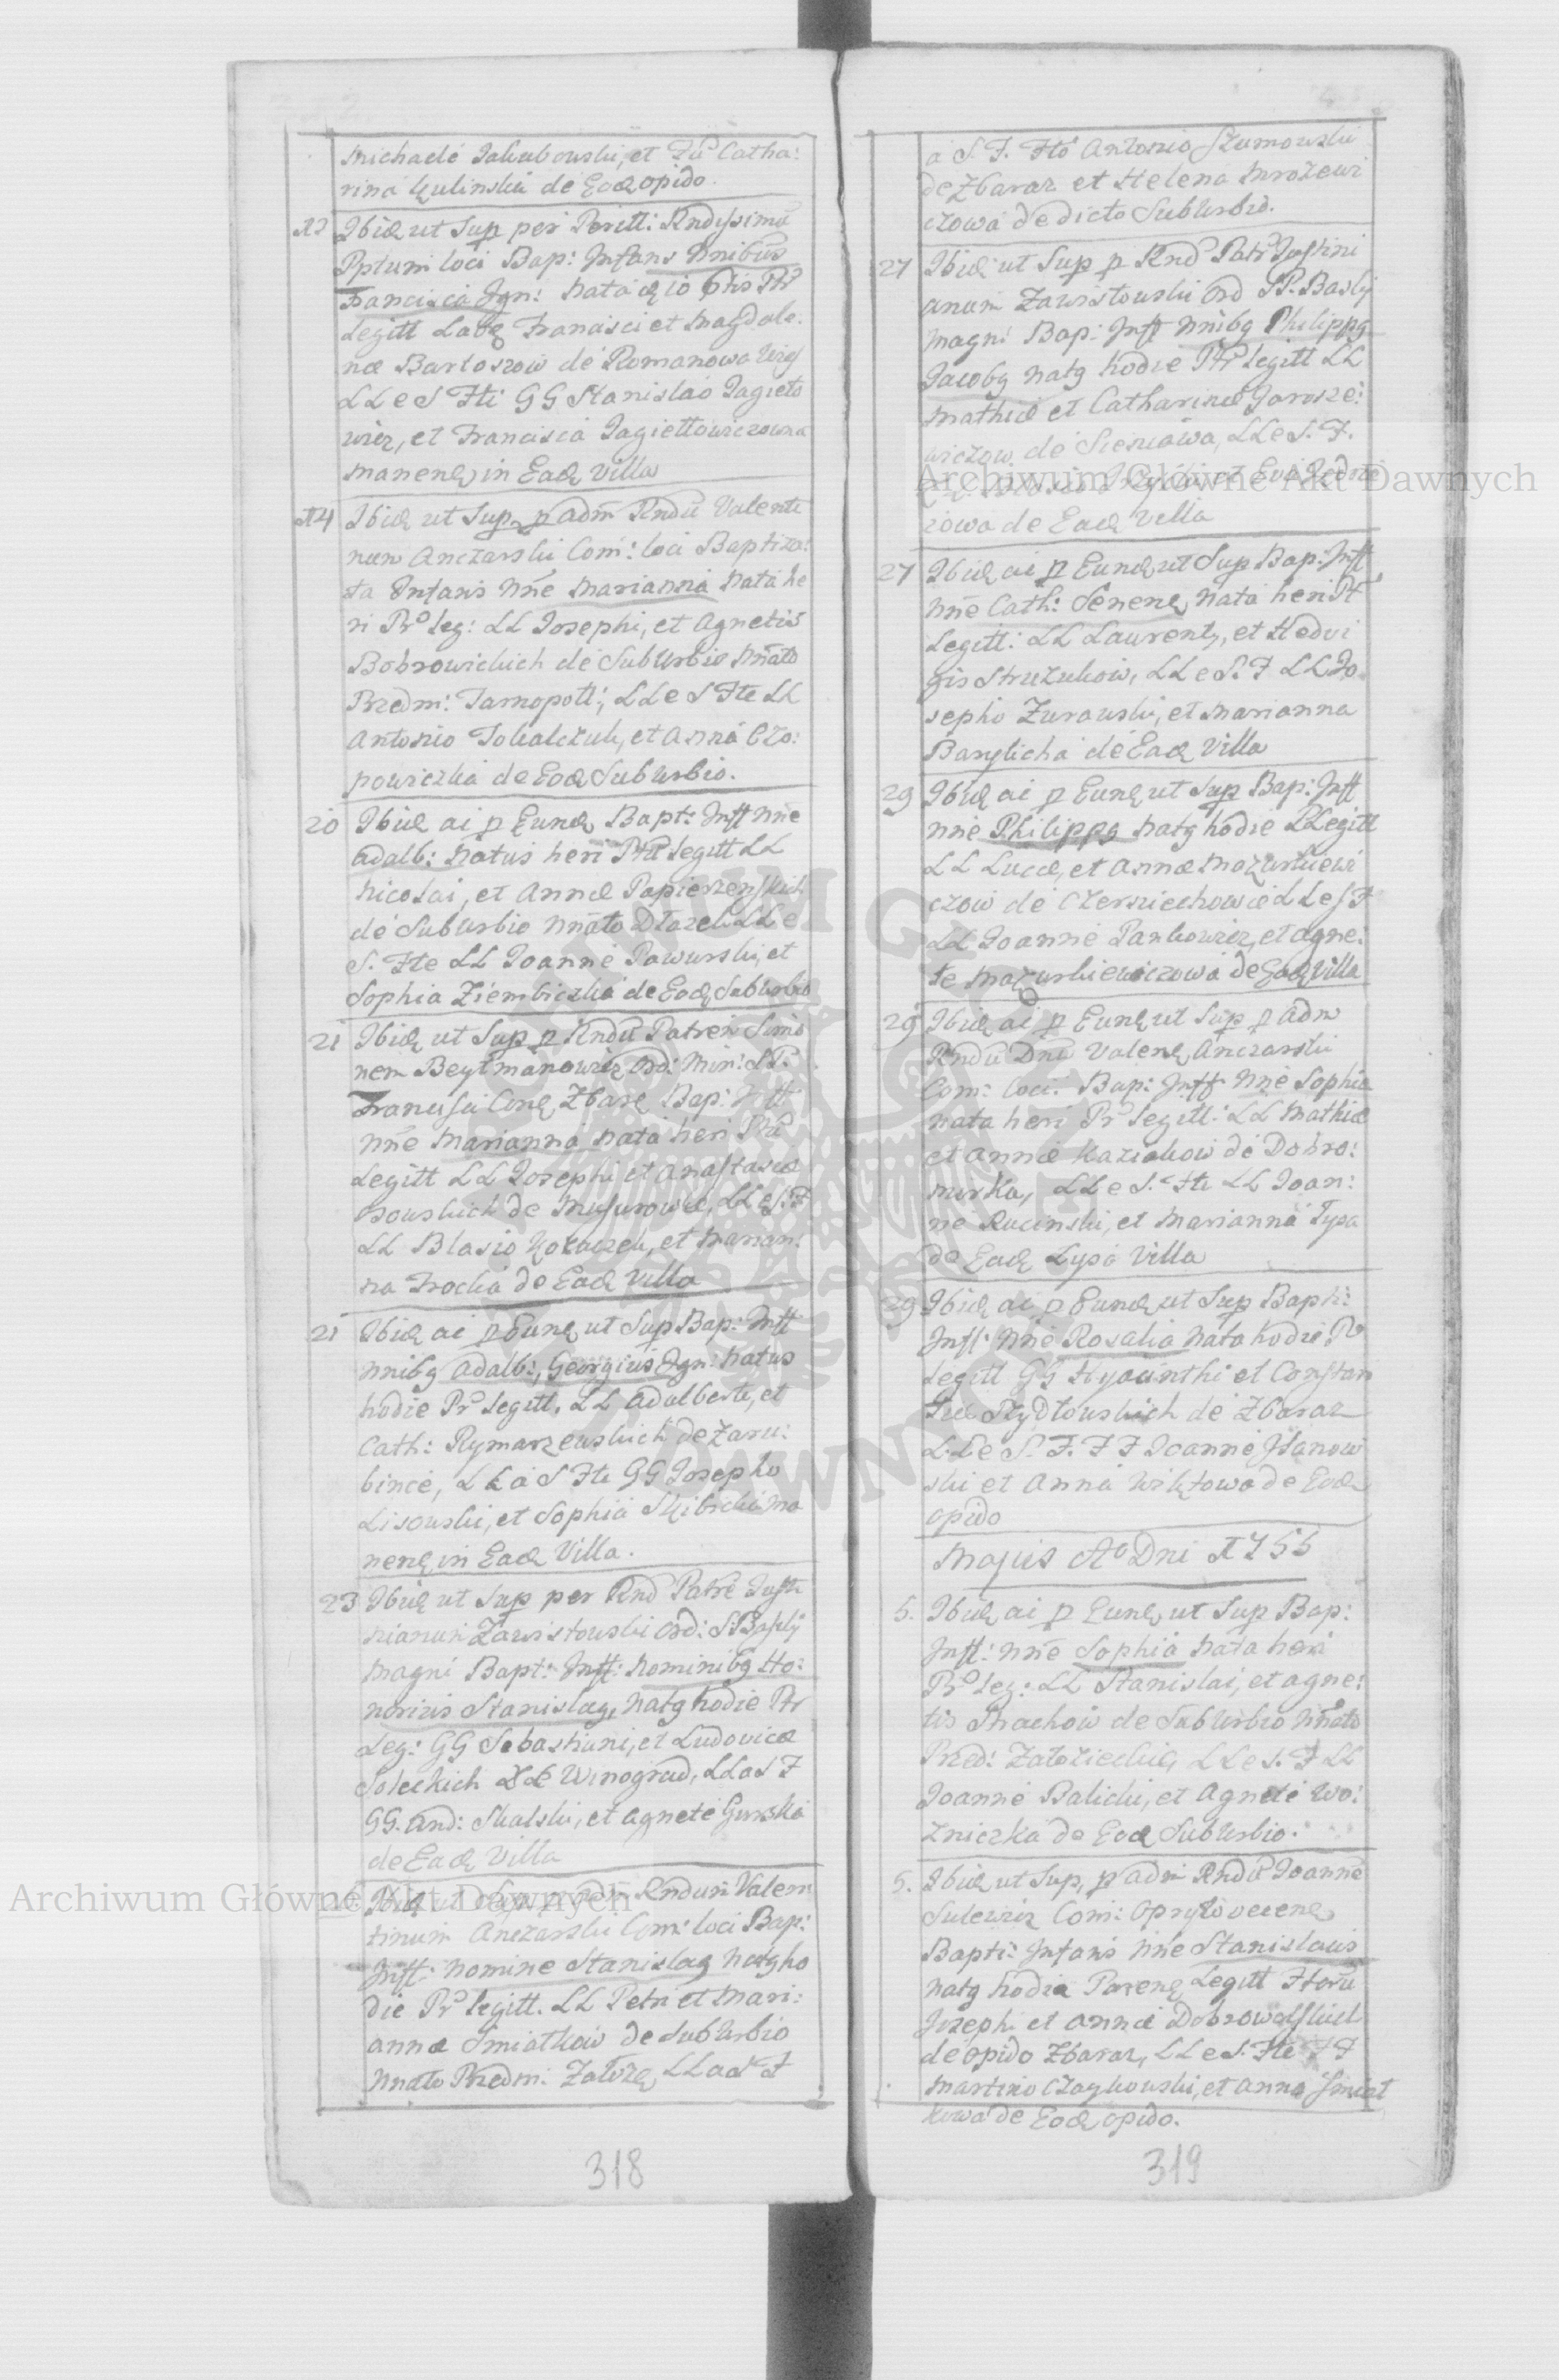 Michaele Jakubowski, et Fu Catha:
rina Kulinska de Eod opido.
13 Ibid ut Sup per Perill: Rndissimu
Pptum loci Bap: Infans Nnibus
Francisca Jgn: Nata d 10 Ptis Ptr
Legitt Labo Francisci et Magdale:
næ Bartoszow de Romanowa
LL e S Fti GG Stanislao Jagieło
wicz, et Francisca Jagiełłowiczowna
Manenq in Eadq Villa
14 Ibid ut Sup p Adm Rndu Valenti
num Anczarski Com: loci Baptiza:
ta Infans Nne Marianna Nata he
ri Pr Leg: LL Josephi, et Agnetis
Bobrowickich de Suburbio Nnato
Przedm: Tarnopoll:, LL e S Fte LL
Antonio Tokalczuk, et Anna Czo:
powiczka de Eod Suburbio.
20 Ibid ai p Eund Bapt: Inft Nne
Adalb: Natus heri Ptu Legitt LL
Nicolai, et Annæ Papierzynskich
de Suburbio Nnato LL e
S. Fte LL Joanne Pawurski, et
Sophia Ziembiczka de Eod Suburbio
21 Ibid ut Sup p Rndu Patrem Simo
nem Beytmanowicz Ord: Min: S P.
Francisci Conq Zbarq Bap: Inft
Nne Marianna Nata heri Ptu
Legitt LL Josephi et Anastasiæ
de LL e S. F
LL Blasio Kokaczek, et Marian:
na de Eadq Villa
21 Ibid ai p Eunq ut Sup Bap: Inft
Nnibg Adalb:, Georgius Jgn: Natus
hodie Pr Legitt. LL Adalberti, et
Cath: Rymarzewskich de Zaru:
bince, LL a S Fte GG Josepho
Lisowski, et Sophia Ma
nenq in Eadq Villa.
23 Ibid ut Sup per Rnd Patre Justi
nianum Zawistowski Ord: S: Basily
Magni Bapt: Inft: Nominibg Ho:
norius Stanislag, Natg hodie Ptr
Leg: GG Sebastiani, et Ludovicæ
Soleckich de Winograd, LL a S F
GG. And: Skalski, et Agnete Gurska
de Eadq Villa
Ibid ut Sup p Adm Rndum Valen
tinum Anczarski Com: loci Bap:
Inft: Nomine Stanislag Natg ho
die Pr Legitt. LL Petri et Mari:
annæ Smiatkow de Suburbio
Nnato Przedm: Załoze, LL a S F
318
a S. F. Fto Antonio Szumowski
de Zbaraz et Helena Mrozewi
czowa de dicto Suburbio.
27 Ibid ut Sup p Rnd Patr Justini
anum Zawistowski Ord SP. Basily
Magni Bap: Inft Nnibg Philippg
Jacobg Natg hodie Ptr Legitt LL
Mathiæ et Catharinæ Jarosze:
wiczow de LL e S. F.
czowa de Eadq Villa
27 Ibid ai p Eund ut Sup Bap: Inft
Nne Cath: Senenq Nata heri Pt
Legitt: LL Laurenty, et Hedvi
gis Struzukow, LL e S. F LL Jo
sepho Zurawski, et Marianna
Barylicha de Eadq Villa
29 Ibid ai p Eund ut Sup Bap: Inft
Nne Philippg Natg hodie P Legitt
LL Lucæ, et Annæ Mazurkiewi
czow de Czerniechowce LL e S F
LL Joanne Pankowicz, et Agne:
te Mazurkiewiczowa de Eadq Villa
29 Ibid ai p Eund ut Sup p Adm
Rndu Dnu Valenq Anczarski
Com: loci. Bap: Inft Nne Sophia
Nata heri Pr Legitt: LL Mathiæ
et Annæ Kaziakow de Dobro:
mirka, LL e S. Fte LL Joan:
ne Rucinski, et Marianna Lysa
de Eadq Lysa Villa
29 Ibid ai p Eund ut Sup Bapti:
Inft: Nne Rosalia Nata hodie Pr
Legitt GG Hyacinthi et Constan
tiæ Szydłowskich de Zbaraz
LL e S. F. F F Joanne Jsanow
ski et Anna de Eod
opido
Majus Ao Dni 1755
5. Ibid ai p Eund ut Sup Bap:
Inft: Nne Sophia Nata heri
Pr Leg: LL Stanislai, et Agne:
tis de Suburbio Nnato
Przed: Załozieckie, LL e S. F LL
Joanne Balicki, et Agnete Wo:
zniczka de Eod Suburbio.
5. Ibid ut Sup, p Adm Rndu Joanne
Sulewicz Com: Opryłovecenq
Bapti: Infans Nne Stanislaus
Natg hodie Parenq Legitt Ftoru
Jozephi et Annæ Dobrowolskich
de opido Zbaraz, LL e S. Fte F F
Martino Czaykowski, et Anna Smiat
kowa de Eod opido.
319
Archiwum Główne Akt Dawnych
Archiwum Główne Akt Dawnych